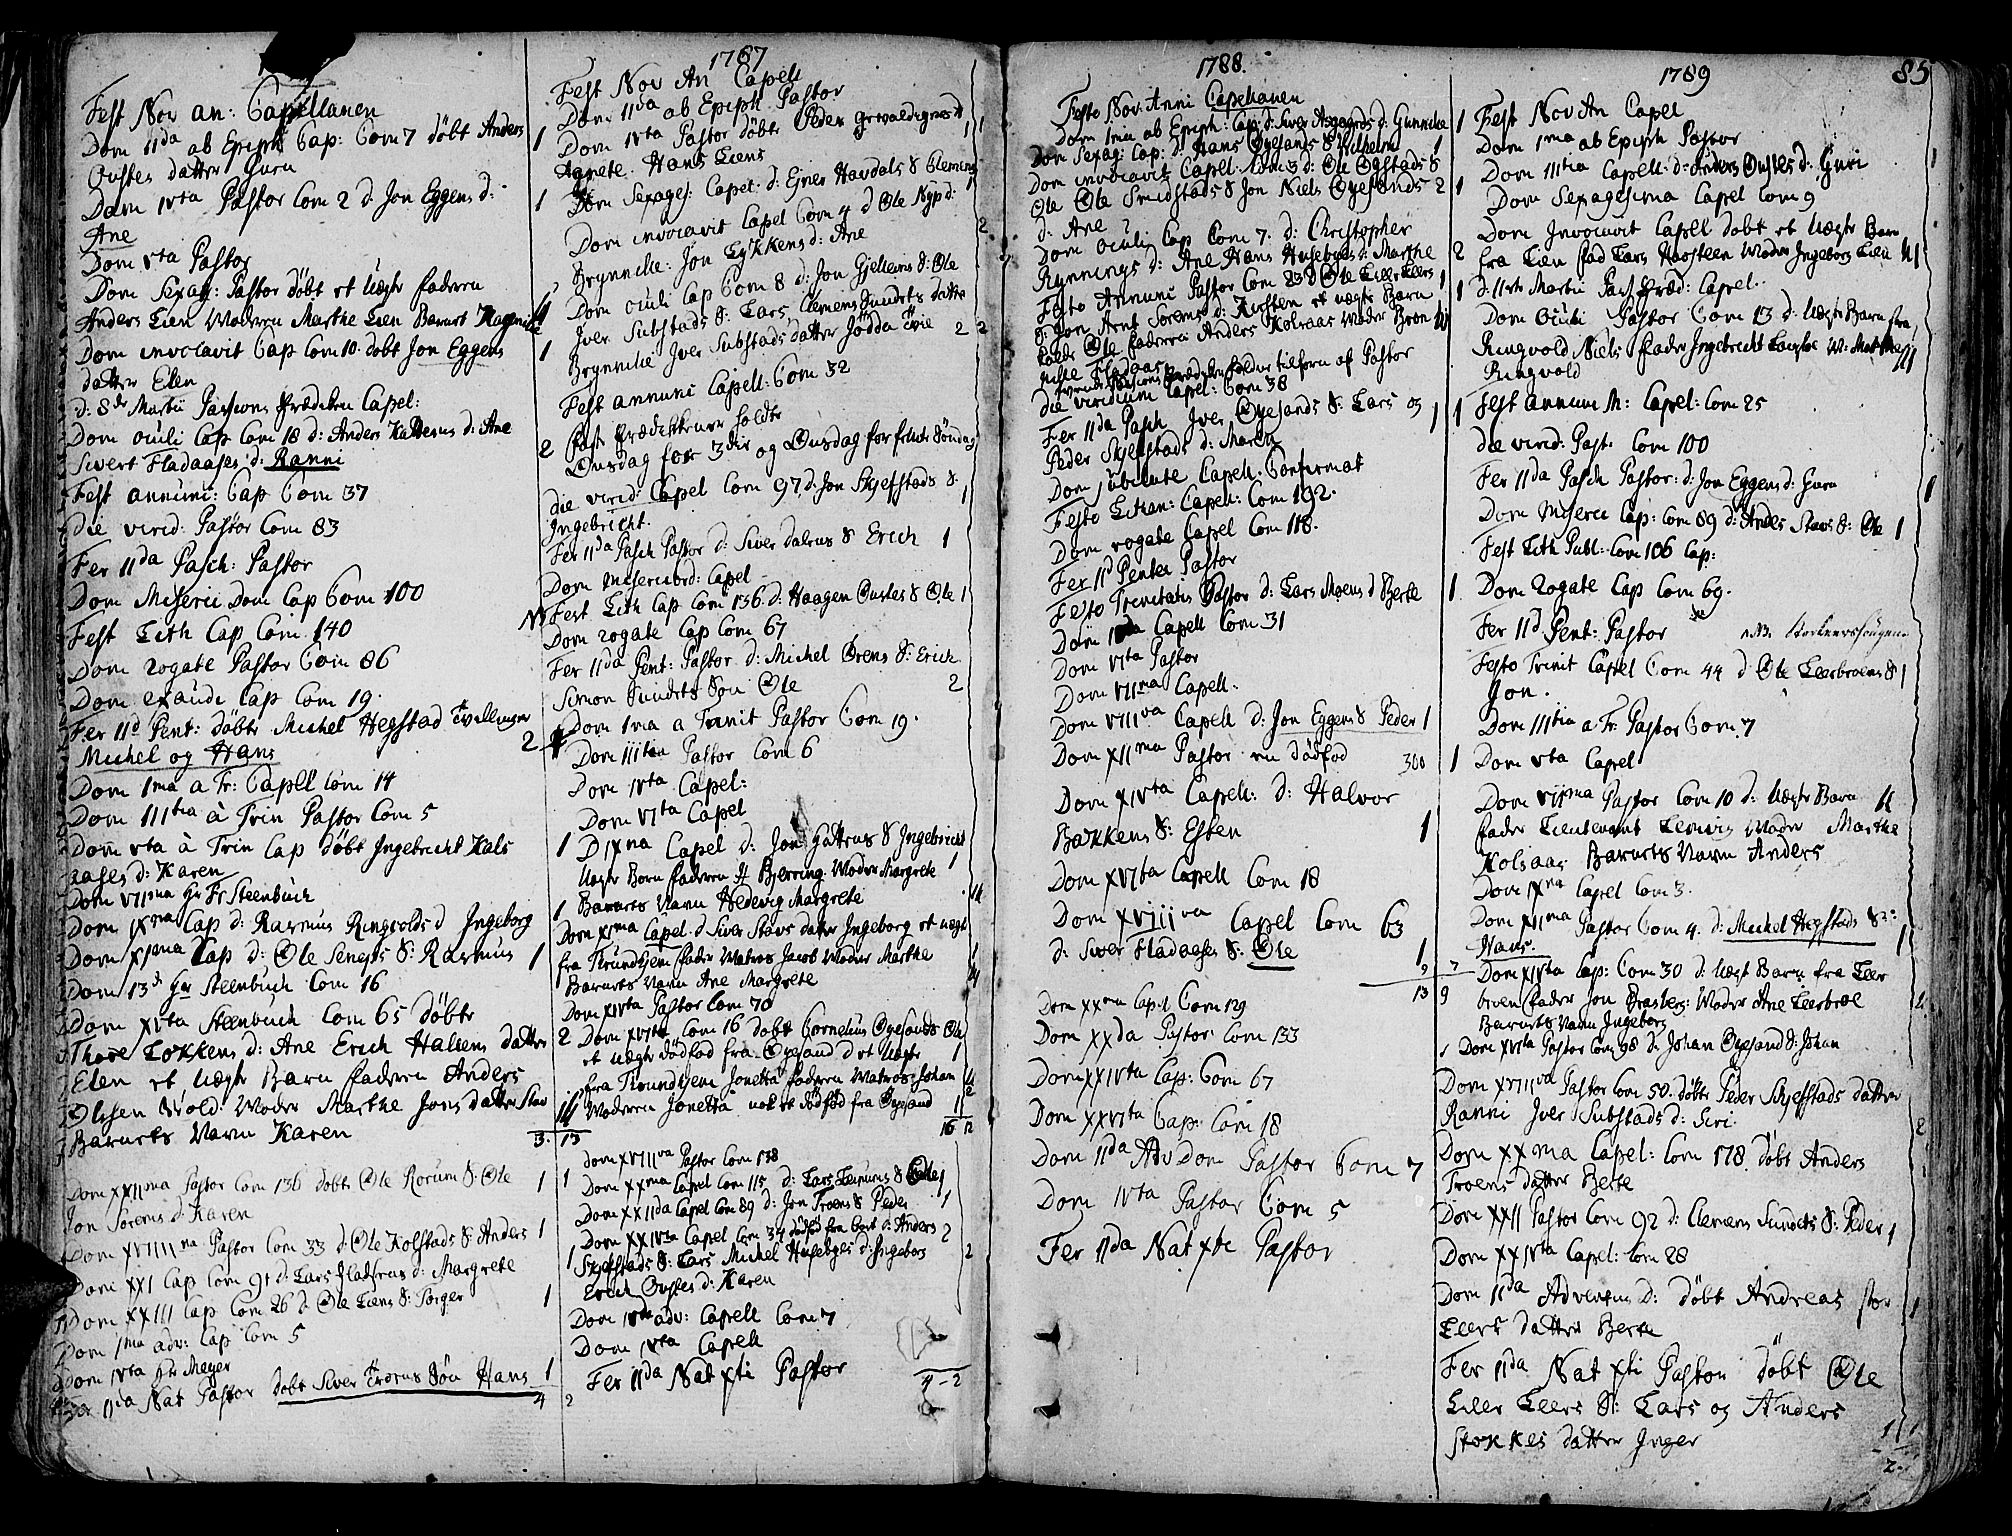 Fest Nov an: Capellanen
Dom 11da ab Epiph Cap: Com 7 döbt Anders
Oustes datter Guru
Dom 1Vta Pastor Com 2 d. Jon Eggens d: 1
Ane
Dom Vta Pastor
Dom Sexag: Pastor döbt et Uægte faderen
Anders Lien Moderen Marthe Lien Barnet
Dom invocavit Cap Com 10. döbt Jon Eggens 1
datter Elen
d: 8de Martii Passions Prædiken Capel:
Dom oculi Cap Com 18 d: Anders Hallems d: Ane
Sivert Fladaases d: Ranni 2
Fest annunc: Cap Com 37
Die virid: Pastor Com 83
Fer 11da Pasch: Pastor
Dom Miseric Dom Cap Com 100
Fest Lith Cap Com 140
Dom rogate Pastor Com 86
Dom exaudi Cap Com 19.
Fer 11d Pent: döbte Michel Hegstad Tvillinger
Michel og Hans 2
Dom 1ma a Tr: Capell Com 14
Dom 111tia à Trin Pastor Com 5
Dom Vta à Trin Cap döbt Ingebrecht Kols 1
aases d: Karen
Dom V11ma Hr Fr Steenbuch
Dom 1Xna Cap d: Rasmus Ringvolds d Ingeborg 1
Dom X1ma Cap d: Ole Seneses S: Rasmus 1
Dom 13d Hr Steenbuch Com 16
Dom XVta Steenbuch Com 65 döbte
Thore Lokkens d: Ane Erich Hallems datter 2
Elen et Uægte Barn faderen Anders
Olsen Wold: Moder Marthe Jons datter Stav
Barnets Navn Karen
3. 13
Dom XX11ma Pastor Com 136 döbt Ole Rorum S: Ole 1
Jon Sorems d: Karen 1
Dom XV1111na Pastor Com 33 d: Ole Kolstads S: Anders 1
Dom XX1 Cap Com 91 d: Lars Hadsens d: Margrete 1
Dom XX111 Cap Com 26 d: Ole Liens S: Törger 1
Dom 1ma adv: Cap Com 5
Dom 1Vta Hr Meyer
Fer 11da Nat Pastor döbt Siver Troens Sön Hans 1
4 2
1787
Fest Nov An Capell
Dom 11da ab Epiph Pastor
Dom 1Vta Pastor döbt Peder
Agnete. Hans Liens 1
Dom Sexages: Capel: d: Ejner Havdals S Clemens
Dom invocavit Capel Com 4 d Ole Nyp d:
Brynnild: Jon Lykkens d: Ane 2
Dom oculi Cap Com 8 d: Jon Gjellems S: Ole
Iver Substads S: Lars, Clemens Sundets datter
Brynnild Iver Substads datter Jödda Tvil 2
Fest annunc Capell: Com 32
Past: Prædikkener holdte
Onsdag for 3die og Onsdag for femte Söndag
die virid: Capel Com 97. d: Jon Skjefstads S.
Ingebricht. 1
Fer 11da Pasch Pastor d: Siver Dalens S Erich 1
Dom Misericord: Capel
Fest Lith Cap Com 136. d: Haagen Oustes S: Ole 1
Dom rogate Cap Com 67
Fer 11da Pent: Pastor d: Michel Örens S: Erich
Simon Sundets Sön Ole 2
Dom 1ma a Trinit Pastor Com 19.
Dom 111tia Pastor Com 6
Dom 1Vta Capel:
Dom V1ta Capel
D 1Xna Capel d: Jon Hattens S Ingebricht
Uægte Barn faderen Hr Bjerring Moder Margrete 1
Barnets Navn Hedevig Margrete
Dom X1ma Capel d Siver Stavs datter Ingeborg et uægt
fra Trundhjem fader Matros Jacob Moder Marthe
Barnets Navn Ane Margrete
Dom X1Vta Pastor Com 70
Dom XV1ta Com 16 döbt Cornelius Öyesands Ole
et Uægte dödfød fra Öyesand d et Uægte 1
fra Trundhjem Jonetta faderen Matros Johan
Moderen Jonetta nok et dödfød fra Öyesand
16 12
Dom XV111va Pastor Com 138
Dom XXma Capel Com 115 d: Lars Leinums S Ole 1
Dom XX11da Capel Com 89 d: Jon Troens S Peder 1
Dom XX1Vta Capel Com 34 dödfød fra Gort d: Anders 2
Skjefstads S: Lars Michel Husebyes d: Ingeborg 2
Erich Oustes d: Karen
Dom 11da adv: Capell Com 7
Dom 1Vta Capell
Fer 11da Nat xti Pastor
4 - 2
1788.
Festo Nov. Anni Capellanen
Dom 1ma ab Epiph: Cap: d: Siver Aspaas d: Gunnild 1
Dom Sexag: Cap: d: Hans Öyesands S Wilhelm 1
Dom invocavit Capell: Com 3 d: Ole Ögstads S
Ole Ole Smidstads S Jon Niels Öyesands 2
d: Ane ?
Dom oculi Cap Com 7. d: Christopher
Rynnings d: Ane Hans Husebyes d: Marthe 2
Festo Annunc Pastor Com 23 d Ole Lille Leers 1
S: Jon Arnt Sorems d: Kirsten et uægte Barn
kaldt Ole faderen Anders Kolsaas Moder Bren
nille Fladaas
hvende Passions Prædiken holdes tilforn af Pastor
die viridium Capel: Com 38
Fer 11da Pasch Iver Öyesands S: Lars og 1
Peder Skjefstads d: Maren
Dom jubilate Capell: Confirmat
Festo Litan: Capell: Com 192.
Dom rogate Capel Com 118.
Fer 11d Pente Pastor
Festo Trinitatis Pastor d: Lars Moens d Berte 1.
Dom 11da Capell Com 31
Dom V1ta Pastor
Dom V11ma Capell.
Dom V111va Capell d: Jon Eggens S Peder 1
Dom X11ma Pastor en Dödfød 300 1
Dom X1Vta Capell: d: Halvor
Bakkens S: Esten 1
Dom XV1ta Capell Com 18
Dom XV111va Capel Com 63
d: Siver Fladaases S: Ole 1
9 7
13 9
Dom XXma Capel Com 129
Dom XX11da Pastor Com 133
Dom XX1Vta Cap: Com 67
Dom XXV1ta Cap: Com 18
Dom 11da Adv Dom Pastor Com 7
Dom 1Vta Pastor Com 5
Fer 11da Nat xti Pastor
1789 85
Fest Nov An Capel
Dom 1ma ab Epiph Pastor
Dom 111tia Capell: d: Anders Oustes d: Guri 1
Dom Sexagesima Capel Com 9
Dom Invocavit Capell döbt et Uægte Barn
fra Lien fad Lars Haasteen Moder Ingeborg Lien
d: 11te Martii Pass Præd: Capel.
Dom Oculi Pastor Com 13 d: Uægte Barn fra
Ringvold Niels fader Ingebricht Langlie M: Marthe
Ringvold
Fest annunc M: Capel: Com 25
die virid: Past: Com 100
Fer 11da Pasch Pastor: d: Jon Eggens d: Guru 1
Dom Miseric Cap: Com 89 d: Anders Stavs S: Ole 1
Fest Lith Publ: Com 106 Cap:
Dom rogate Cap Com 69.
Fer 11d Pent: Pastor NB.
Festo Trinit Capel Com 44 d: Ole Leerbroens S 1
Jon.
Dom 111tia a Tr: Pastor Com 7
Dom Vta Capel
Dom V11ma Pastor Com 10 d: Uægte Barn
fader Lieutenant Marthe
Kolsaas Barnets Navn Anders
Dom 1Xna Capel Com 3.
Dom X11ma Pastor Com 4. d: Michel Hegstads S:
Hans. 1
Dom X1Vta Cap: Com 30 d: Uægt Barn fra Leer
broen fader Jon Moder Ane Leerbroe
Barnets Navn Ingeborg
Dom XV1ta Pastor Com 98 d: Johan Öyesand S: Johan
Dom XV111va Pastor Com 50. döbte Peder Skjefstads datter
Ranni Iver Substads d: Siri. 2
Dom XXma Capel: Com 178. döbt Anders
Troens datter Berte
Dom XX11 Pastor Com 92 d: Clemens Sundets S: Peder 1
Dom XX1Vta Capel: Com 28
Dom 11da Adventus D: döbt Andreas stor
Leers datter Berte 1
Fer 11da Nat xti Pastor döbt Ole
Lille Leers S: Lars og Anders
Stokkes datter Inger 1 1
2